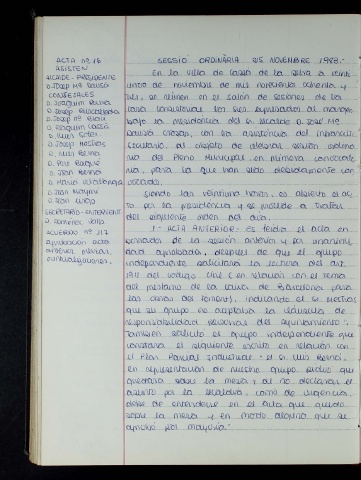 ACTA nº 16
ASISTEN
ALCALDE-PRESIDENTE
D. Josep Mª Dausà
CONCEJALES
D. Joaquim
D. Josep
D. Josep Mª
D. Joaquim
D. Lluís Soler
D. Josep Mestras
D. Lluís Reina
D. Pere Roqué
D. Joan Reina
D. Mario Vilallonga
D. Joan
D. Joan
SECRETARIO-INTERVENTOR
D. Ramírez
ACUERDO nº 117
Aprobación acta
anterior,
SESSIÓ ORDINÀRIA 25 NOVEMBRE 1988.-
En la Villa de Cassà de la Selva a veinti
cinco de noviembre de mil novecientos ochenta y
ocho, se reúnen en el salón de sesiones de la
Casa Consistorial los Sres. expresados al margen
bajo la presidencia del Sr. Alcalde D. José Mª
Dausà, con la asistencia del infrascrito
Secretario, al objeto de celebrar sesión ordina
ria del Pleno Municipal, en primera convocato
ria, para la que han sido debidamente con
vocados.
Siendo las veintiuna horas, es abierto el ac
to por la presidencia y se procede a tratar
del siguiente orden del día.
1.- ACTA ANTERIOR.- Es leída el acta en
borrador de la sesión anterior y por unanimi
dad aprobada, después de que el grupo
independiente solicitara la lectura del art.
1911 del código civil (en relación con el tema
del préstamo de la Caixa de Barcelona para
las obras del torrent), indicando el Sr. Mestras
que su grupo no aceptaba la cláusula de
responsabilidad personal del Ayuntamiento.-
También solicitó el grupo independiente que
constara el siguiente escrito en relación con
el Plan Parcial Industrial: el Sr. Lluís Reina,
en representación de nuestro grupo pidió que
quedara sobre la mesa y al no declararse el
asunto por la Alcaldía, como de urgencia,
debe de entenderse en el Acta que quedó
sobre la mesa y en modo alguno que se
aprobó por mayoría.-